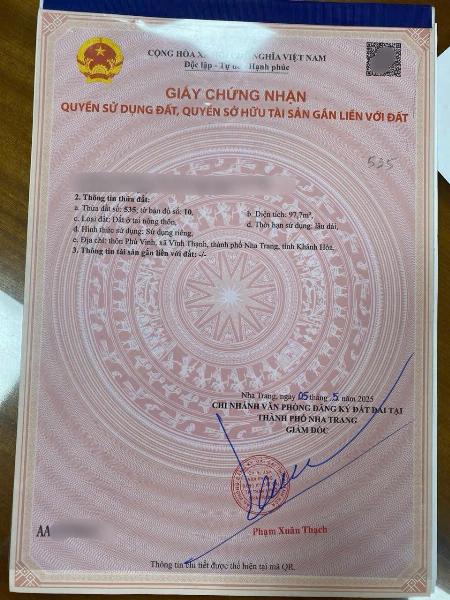 CỘNG HÒA X NGHĨA VIỆT NAM
Độc lập - Tự do - Hạnh phúc
GIẤY CHỨNG NHẬN
QUYỀN SỬ DỤNG ĐẤT, QUYỀN SỞ HỮU TÀI SẢN GẮN LIỀN VỚI ĐẤT
535
2. Thông tin thửa đất:
a. Thửa đất số: 535; tờ bản đồ số: 10, b. Diện tích: 97,7m²,
c. Loại đất: Đất ở tại nông thôn, d. Thời hạn sử dụng: lâu dài,
đ. Hình thức sử dụng: Sử dụng riêng,
e. Địa chỉ: thôn Phú Vinh, xã Vĩnh Thạnh, thành phố Nha Trang, tỉnh Khánh Hòa.
3. Thông tin tài sản gắn liền với đất: -/-
Nha Trang, ngày 05 tháng .5. năm 2025
CHI NHÁNH VĂN PHÒNG ĐĂNG KÝ ĐẤT ĐAI TẠI
THÀNH PHỐ NHA TRANG
GIÁM ĐỐC
Phạm Xuân Thạch
AA
Thông tin chi tiết được thể hiện tại mã QR.